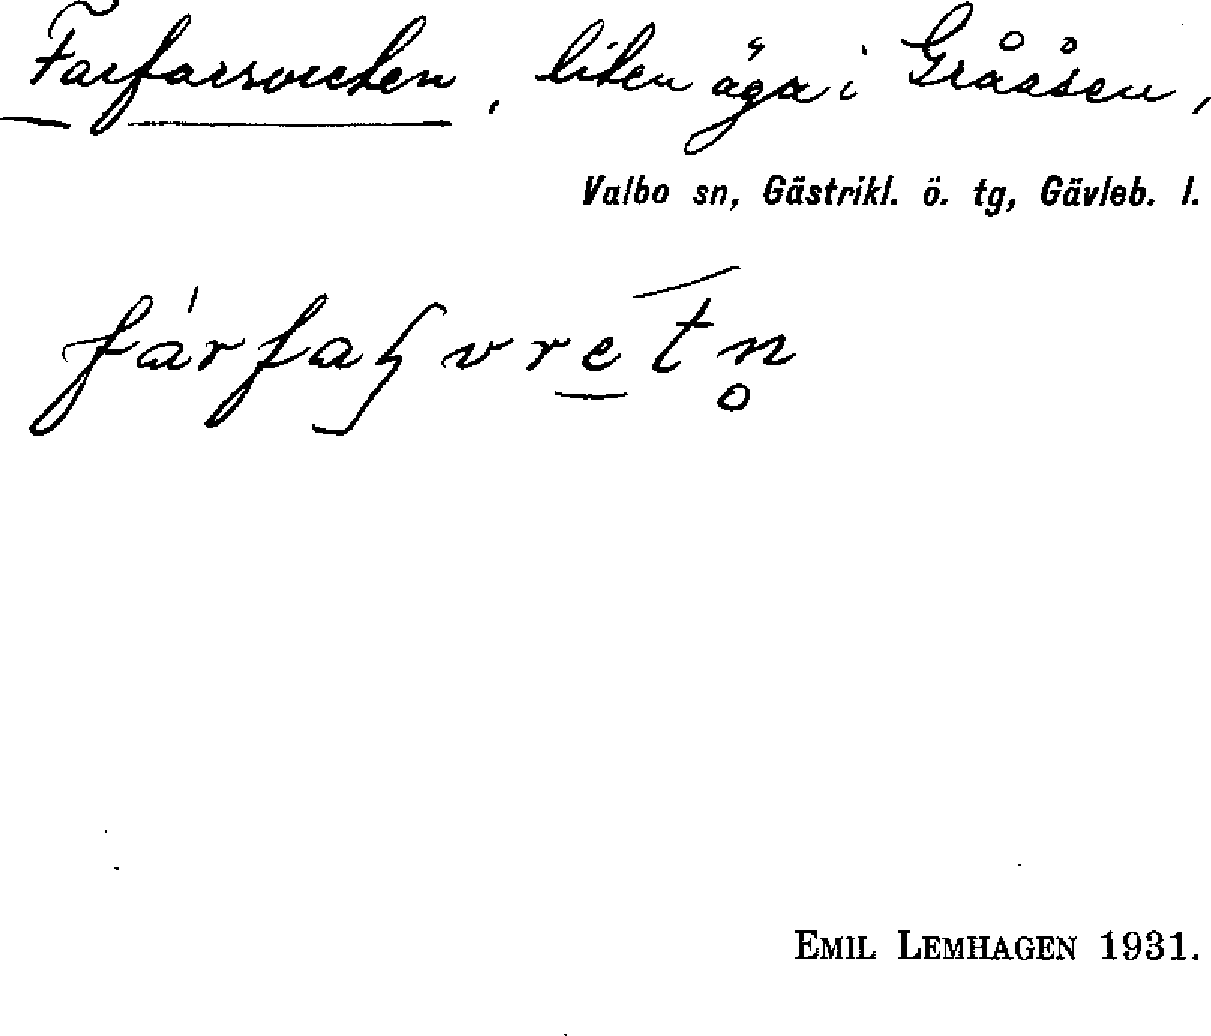 Farfarsvreten, liten äga i Grååsen,
Valbo sn, Gästrikl. ö. tg, Gävleb. l.
EMIL LEMHAGEN 1931.